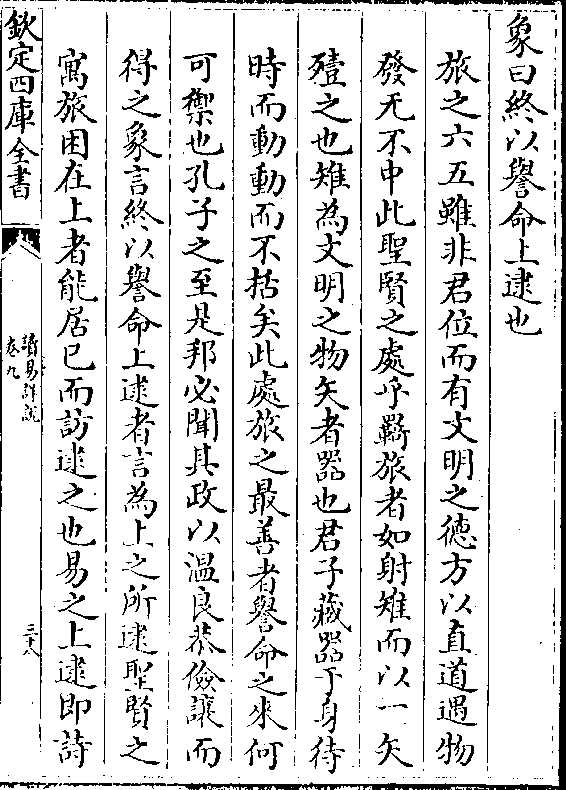 象曰終以譽命上逮也
旅之六五雖非君位而有文明之德方以直道遇物
發无不中此聖賢之處乎羇旅者如射雉而以一矢
殪之也雉為文明之物矢者器也君子藏器于身待
時而動動而不括矣此處旅之最善者譽命之來何
可禦也孔子之至是邦必聞其政以溫良恭儉讓而
得之象言終以譽命上逮者言為上之所逮聖賢之
寓旅困在上者能居已而訪逮之也易之上逮即詩
欽定四庫全書
讀易詳說
卷九
三十八